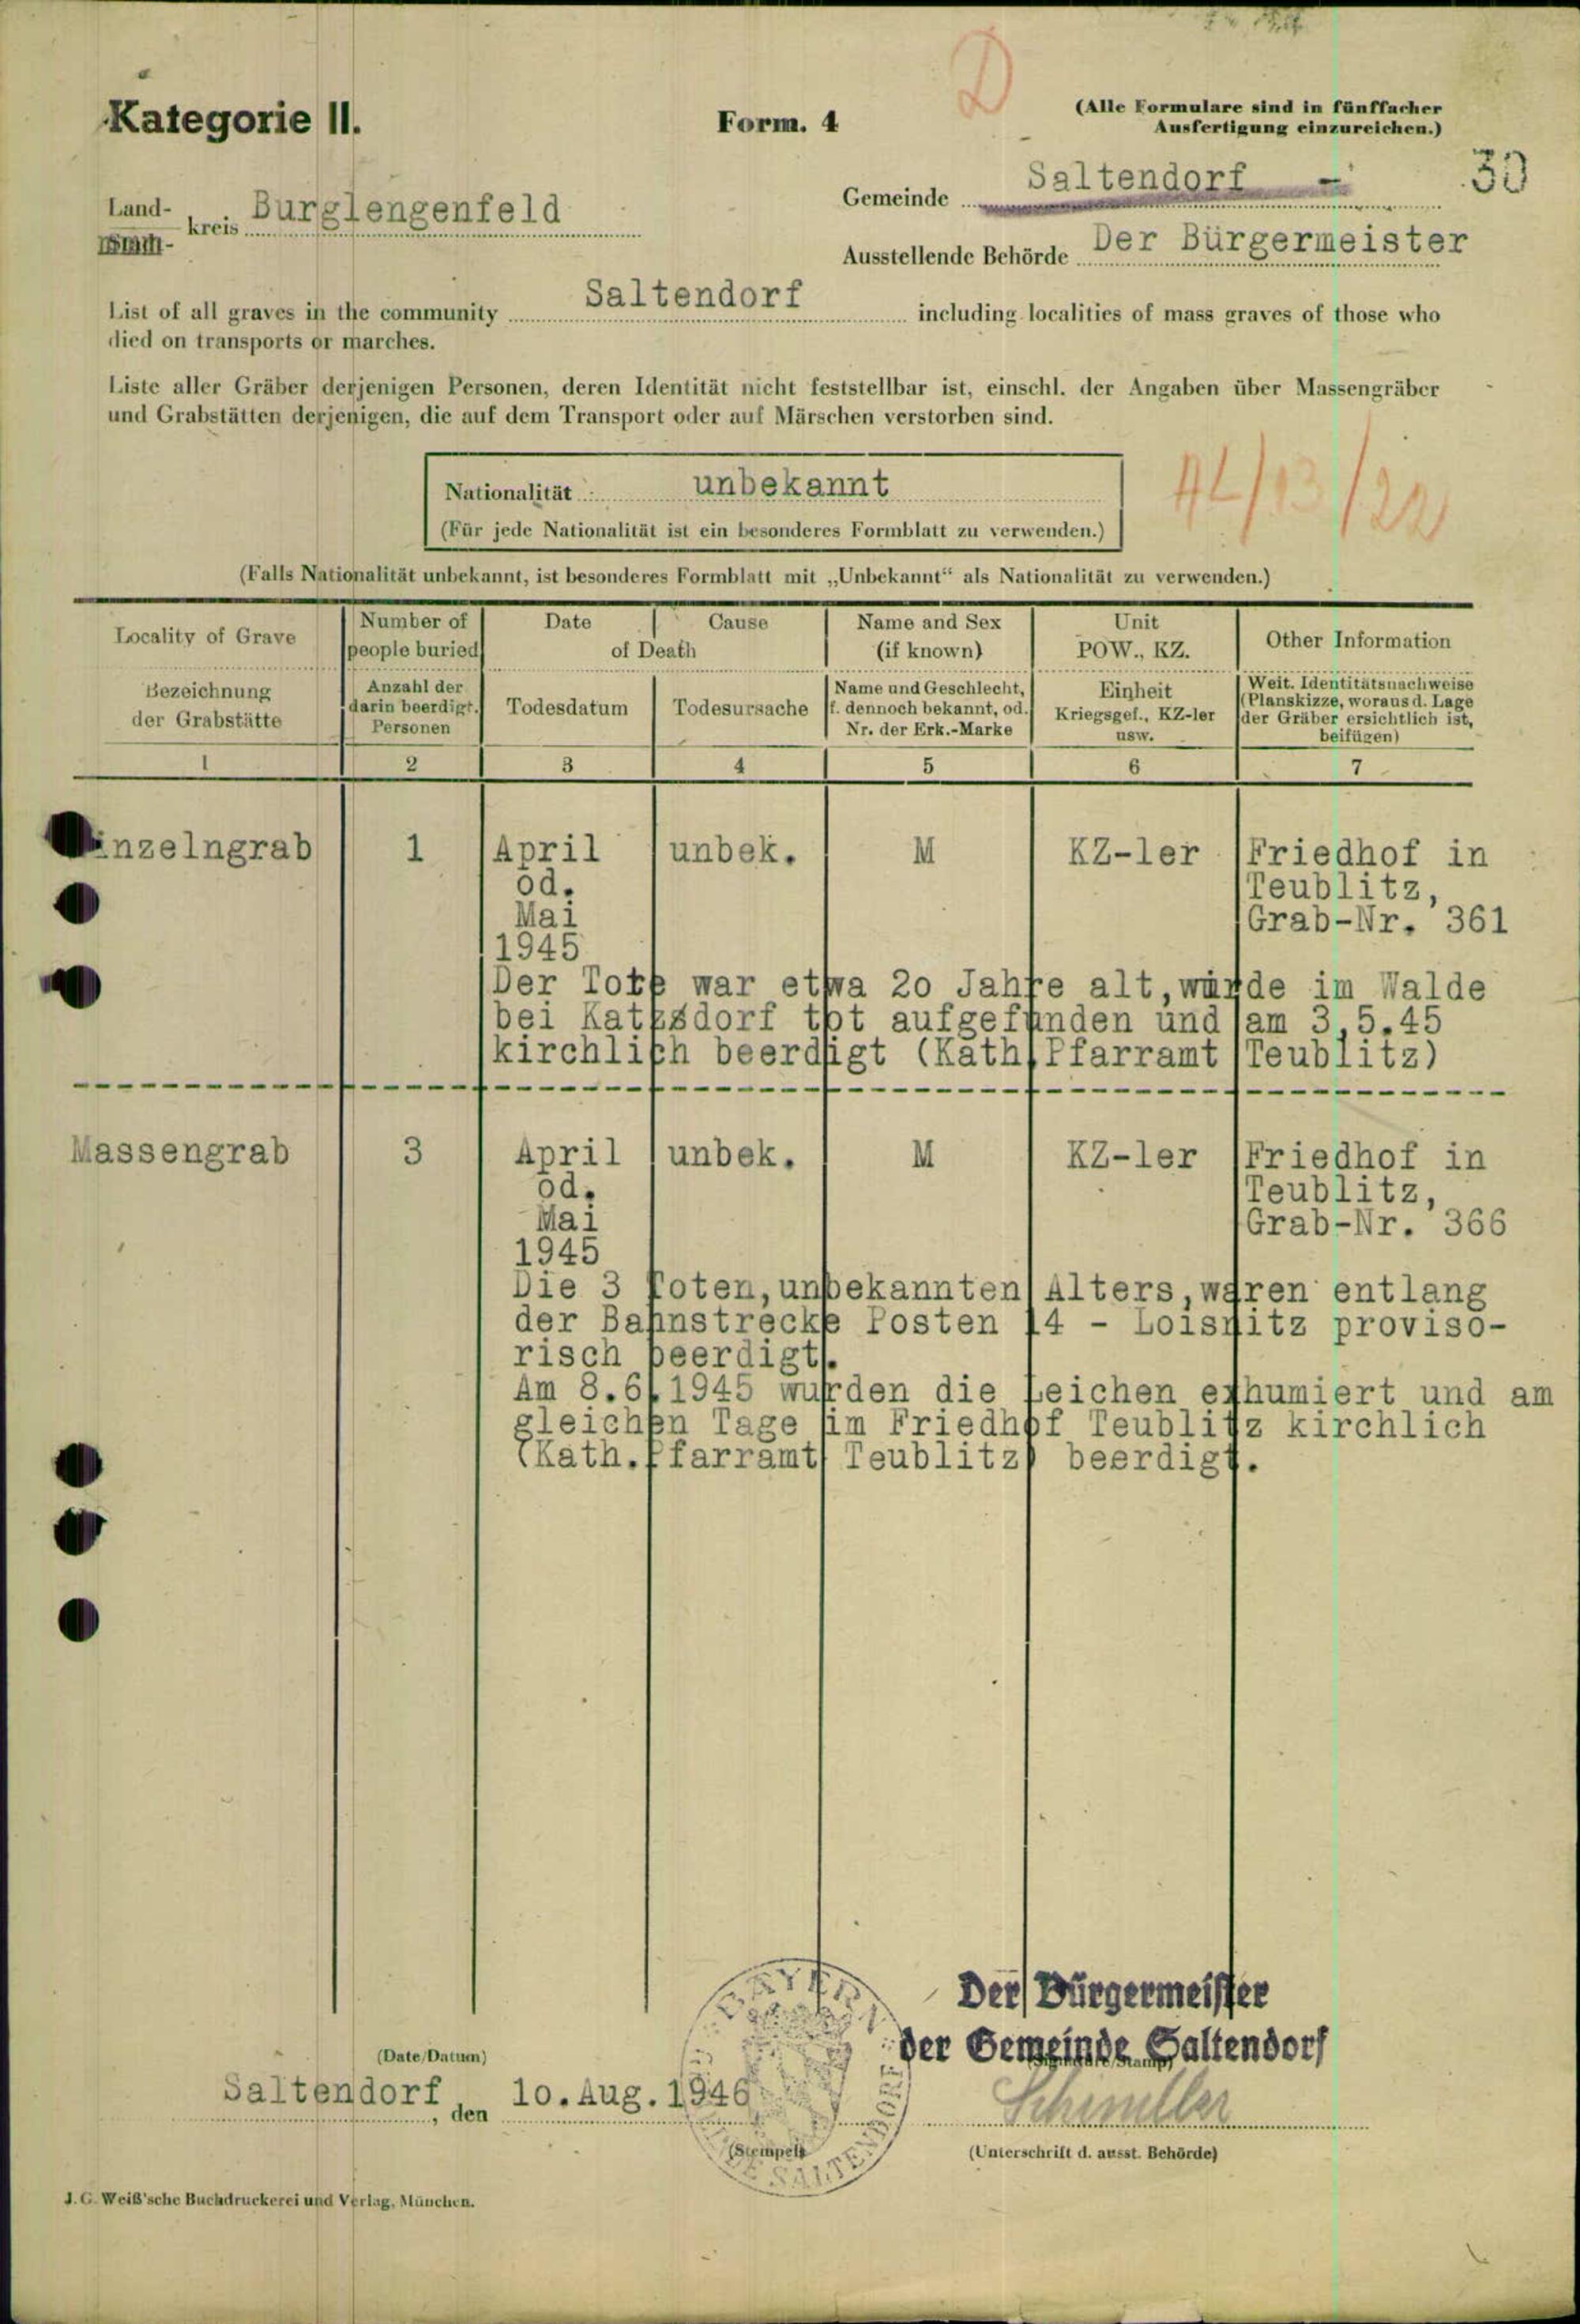 D
Kategorie II.
Form. 4
(Alle Formulare sind in fünffacher
Ausfertigung einzureichen.)
30
Land-
kreis Burglengenfeld
Gemeinde Saltendorf -
Ausstellende Behörde Der Bürgermeister
List of all graves in the community Saltendorf including localities of mass graves of those who
died on transports or marches.
Liste aller Gräber derjenigen Personen, deren Identität nicht feststellbar ist, einschl. der Angaben über Massengräber
und Grabstätten derjenigen, die auf dem Transport oder auf Märschen verstorben sind.
Nationalität : unbekannt
(Für jede Nationalität ist ein besonderes Formblatt zu verwenden.)
(Falls Nationalität unbekannt, ist besonderes Formblatt mit „Unbekannt“ als Nationalität zu verwenden.)
Locality of Grave
Number of
people buried
Date
Cause
of Death
Name and Sex
(if known)
Unit
POW., KZ.
Other Information
Bezeichnung
der Grabstätte
Anzahl der
darin beerdigt.
Personen
Todesdatum
Todesursache
Name und Geschlecht,
f. dennoch bekannt, od.
Nr. der Erk.-Marke
Einheit
Kriegsgef., KZ-ler
usw.
Weit. Identitätsnachweise
(Planskizze, woraus d. Lage
der Gräber ersichtlich ist,
beifügen)
1 2 3 4 5 6 7
inzelngrab 1 April unbek. M KZ-ler Friedhof in
od. Teublitz,
Mai Grab-Nr. 361
1945
Der Tote war etwa 20 Jahre alt,wurde im Walde
bei Katzsdorf tot aufgefunden und am 3.5.45
kirchlich beerdigt (Kath.Pfarramt Teublitz)
Massengrab 3 April unbek. M KZ-ler Friedhof in
od. Teublitz,
Mai Grab-Nr. 366
1945
Die 3 Toten,unbekannten Alters,waren entlang
der Bahnstrecke Posten 14 - Loisnitz proviso-
risch beerdigt.
Am 8.6.1945 wurden die Leichen exhumiert und am
gleichen Tage im Friedhof Teublitz kirchlich
(Kath.Pfarramt Teublitz) beerdigt.
Der Bürgermeister
der Gemeinde Saltendorf
(Date/Datum)
Saltendorf, den 10.Aug.1946
BAYERN
SALTENDORF
(Stempel)
(Unterschrift d. ausst. Behörde)
J. G. Weiß'sche Buchdruckerei und Verlag, München.